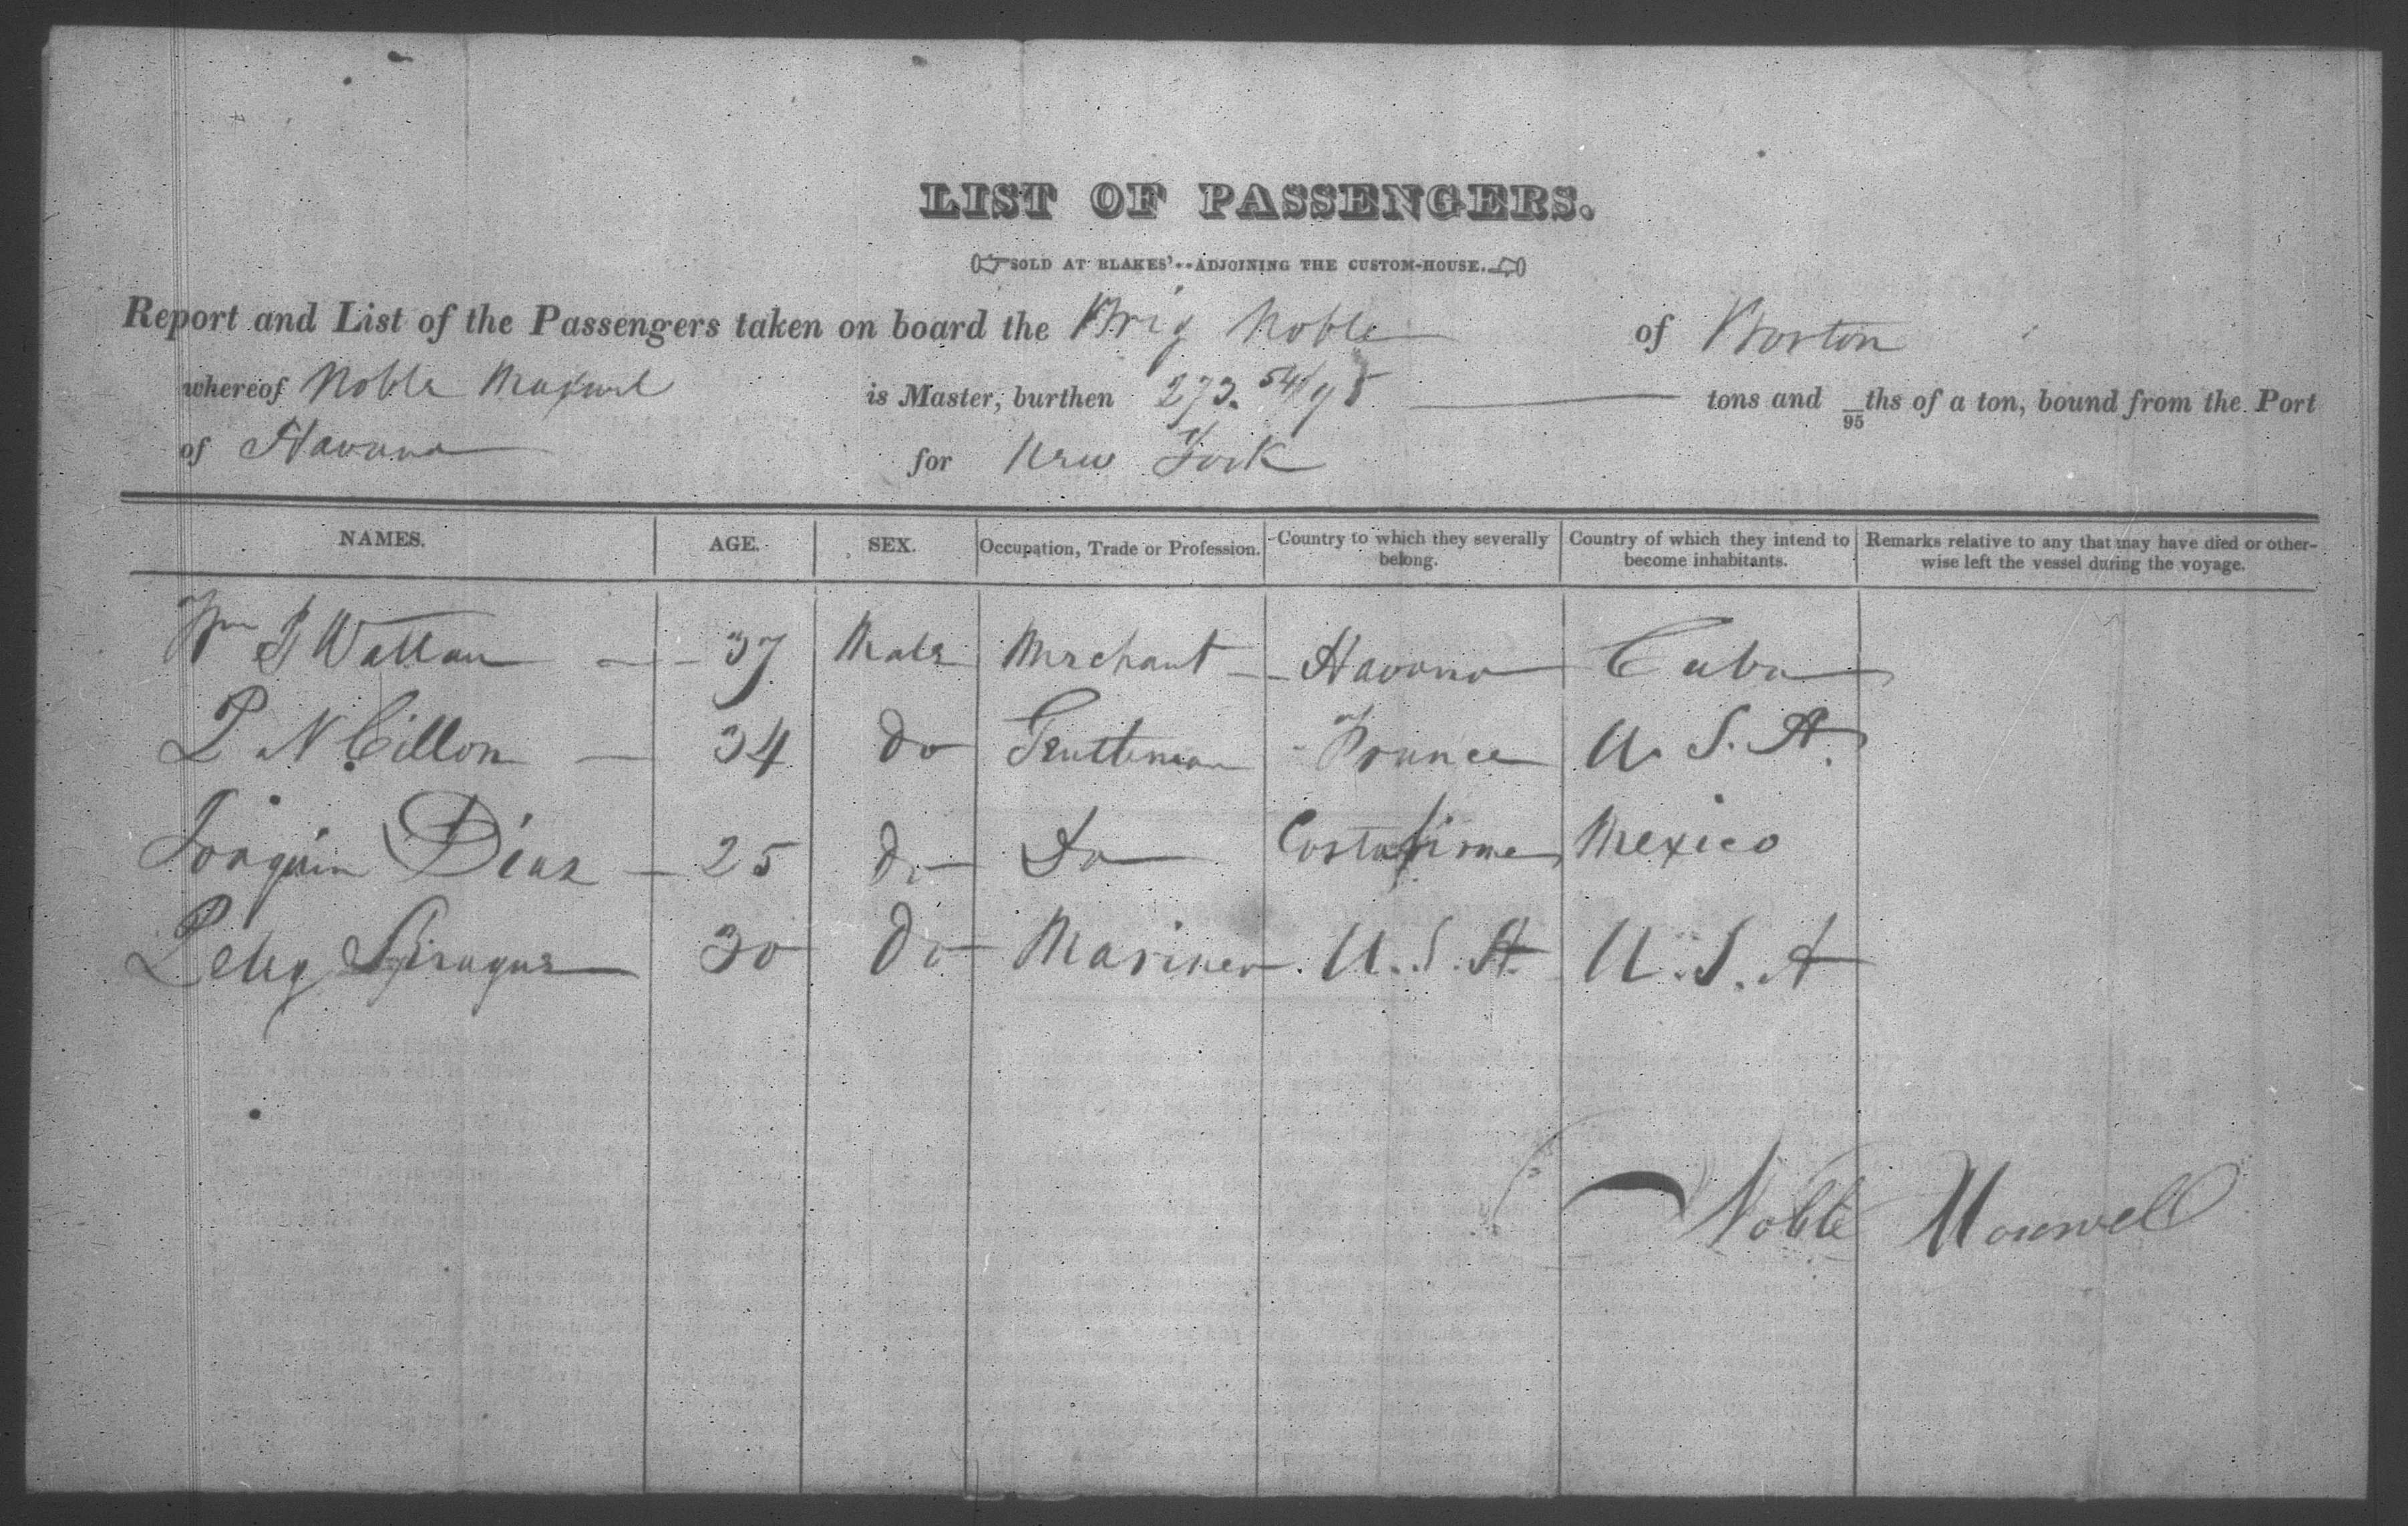 LIST OF PASSENGERS.
SOLD AT BLAKES'--ADJOINING THE CUSTOM-HOUSE.
Report and List of the Passengers taken on board the Brig Noble of Boston
whereof Noble Maxwel is Master, burthen 273. 54/95 tons and /95 ths of a ton, bound from the Port
of Havana for New York
NAMES. AGE. SEX. Occupation, Trade or Profession. Country to which they severally belong. Country of which they intend to become inhabitants. Remarks relative to any that may have died or otherwise left the vessel during the voyage.
Wm Wattan 37 Male Merchant Havana Cuba
P N Cillon 34 Do Gentleman France U. S. A.
Joaquin Diaz 25 Do Do Mexico
Peleg Sprague 30 Do Mariner U. S. A U. S. A
Noble Maxwell